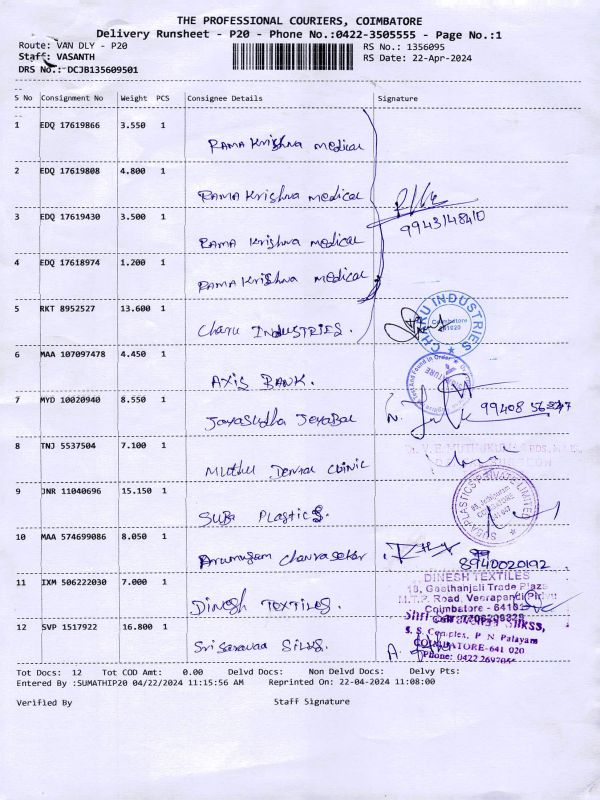 THE PROFESSIONAL COURIERS, COIMBATORE
Delivery Runsheet - P20 - Phone No.:0422-3505555 - Page No.:1
Route: VAN DLY - P20 RS No.: 1356095
Staff: VASANTH RS Date: 22-Apr-2024
DRS No.: DCJB135609501
S No Consignment No Weight PCS Consignee Details Signature
1 EDQ 17619866 3.550 1 Rama Krishna medical
2 EDQ 17619808 4.800 1 Rama Krishna medical
3 EDQ 17619430 3.500 1 Rama Krishna medical 9943148410
4 EDQ 17618974 1.200 1 Rama Krishna medical
5 RKT 8952527 13.600 1 Charu INDUSTRIES. CHARU INDUSTRIES Coimbatore
6 MAA 107097478 4.450 1 AXIS BANK.
7 MYD 10020940 8.550 1 Jayasudha Jeyabal 99408
8 TNJ 5537504 7.100 1 Muthu Dental Clinic
9 JNR 11040696 15.150 1 SUBA PLASTICS. SUBA PLASTICS PRIVATE LIMITED
10 MAA 574699086 8.050 1 Arumugam Chandrasekar 8940020192
11 IXM 506222030 7.000 1 DINESH TEXTILES. DINESH TEXTILES
18, Geethanjali Trade Plaza
M.T.P. Road, Veerapandi
Coimbatore -
12 SVP 1517922 16.800 1 Sri Saravaa SILKS.
S. S. Complex, P N Palayam
COIMBATORE-641 020
Phone: 0422
Tot Docs: 12 Tot COD Amt: 0.00 Delvd Docs: Non Delvd Docs: Delvy Pts:
Entered By :SUMATHIP20 04/22/2024 11:15:56 AM Reprinted On: 22-04-2024 11:08:00
Verified By Staff Signature